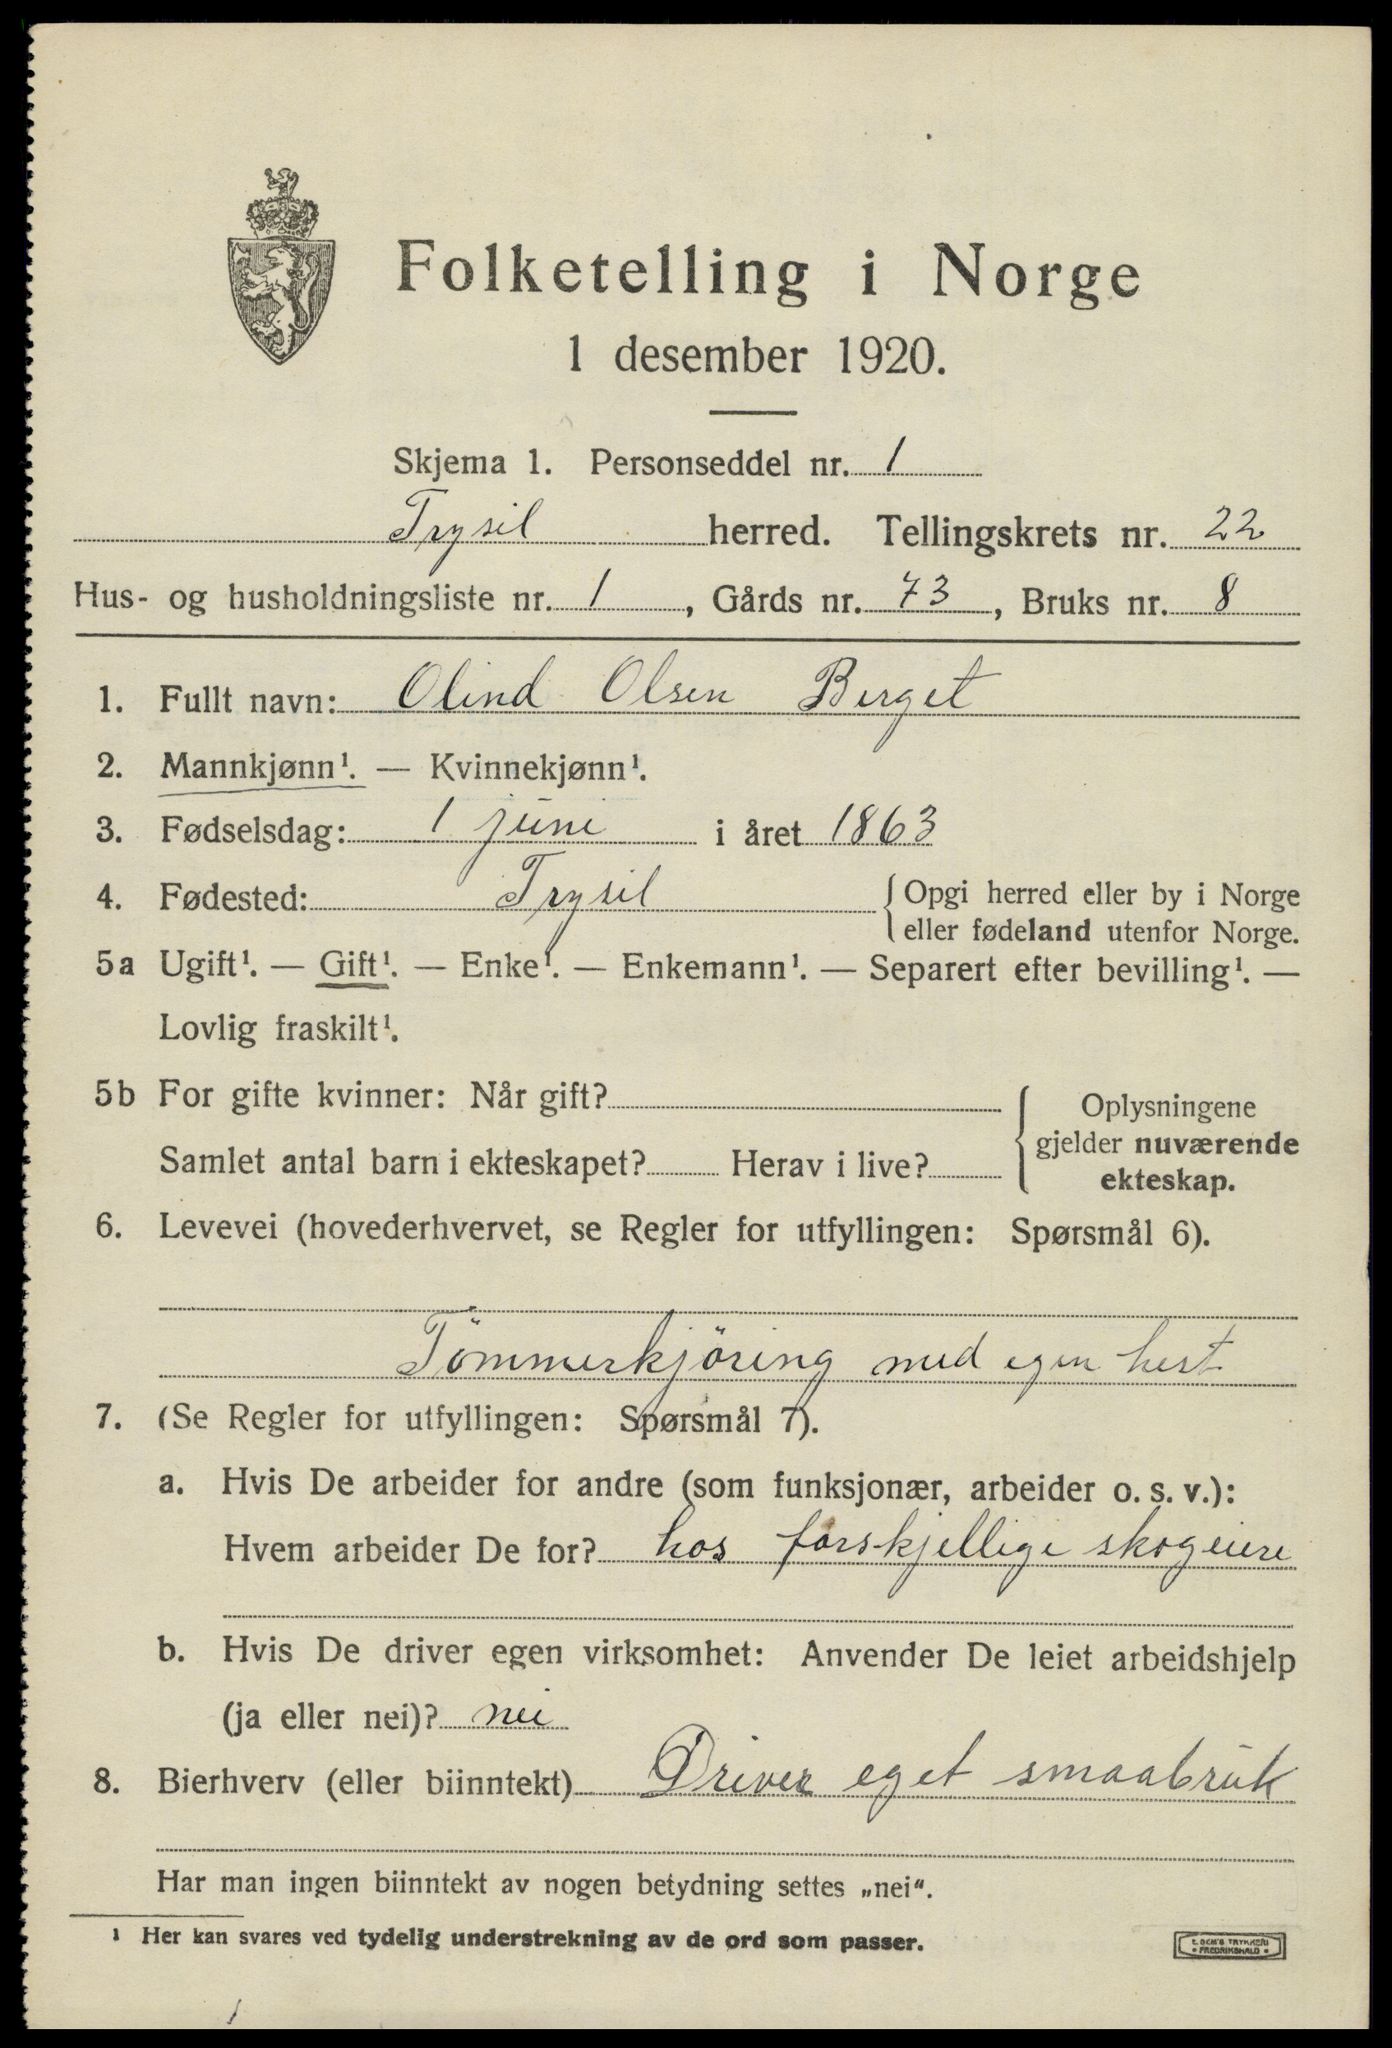 Folketelling i Norge
1 desember 1920.
Skjema 1. Personseddel nr. 1
Trysil herred. Tellingskrets nr. 22
Hus- og husholdningsliste nr. 1, Gårds nr. 73, Bruks nr. 8
1. Fullt navn: Olind Olsen Berget
2. Mannkjønn¹. — Kvinnekjønn¹.
3. Fødselsdag: 1 juni i året 1863
4. Fødested: Trysil {Opgi herred eller by i Norge
eller fødeland utenfor Norge.
5a Ugift¹. — Gift¹. — Enke¹. — Enkemann¹. — Separert efter bevilling¹. —
Lovlig fraskilt¹.
5b For gifte kvinner: Når gift?
Samlet antal barn i ekteskapet? Herav i live?
Oplysningene
gjelder nuværende
ekteskap.
6. Levevei (hovederhvervet, se Regler for utfyllingen: Spørsmål 6).
Tömmerkjöring med egen hest
7. (Se Regler for utfyllingen: Spørsmål 7).
a. Hvis De arbeider for andre (som funksjonær, arbeider o. s. v.):
Hvem arbeider De for? hos forskjellige skogeiere
b. Hvis De driver egen virksomhet: Anvender De leiet arbeidshjelp
(ja eller nei)? nei
8. Bierhverv (eller biinntekt) Driver eget smaabruk
Har man ingen biinntekt av nogen betydning settes „nei“.
¹ Her kan svares ved tydelig understrekning av de ord som passer.
E. SEM'S TRYKKERI
• FREDRIKSHALD •